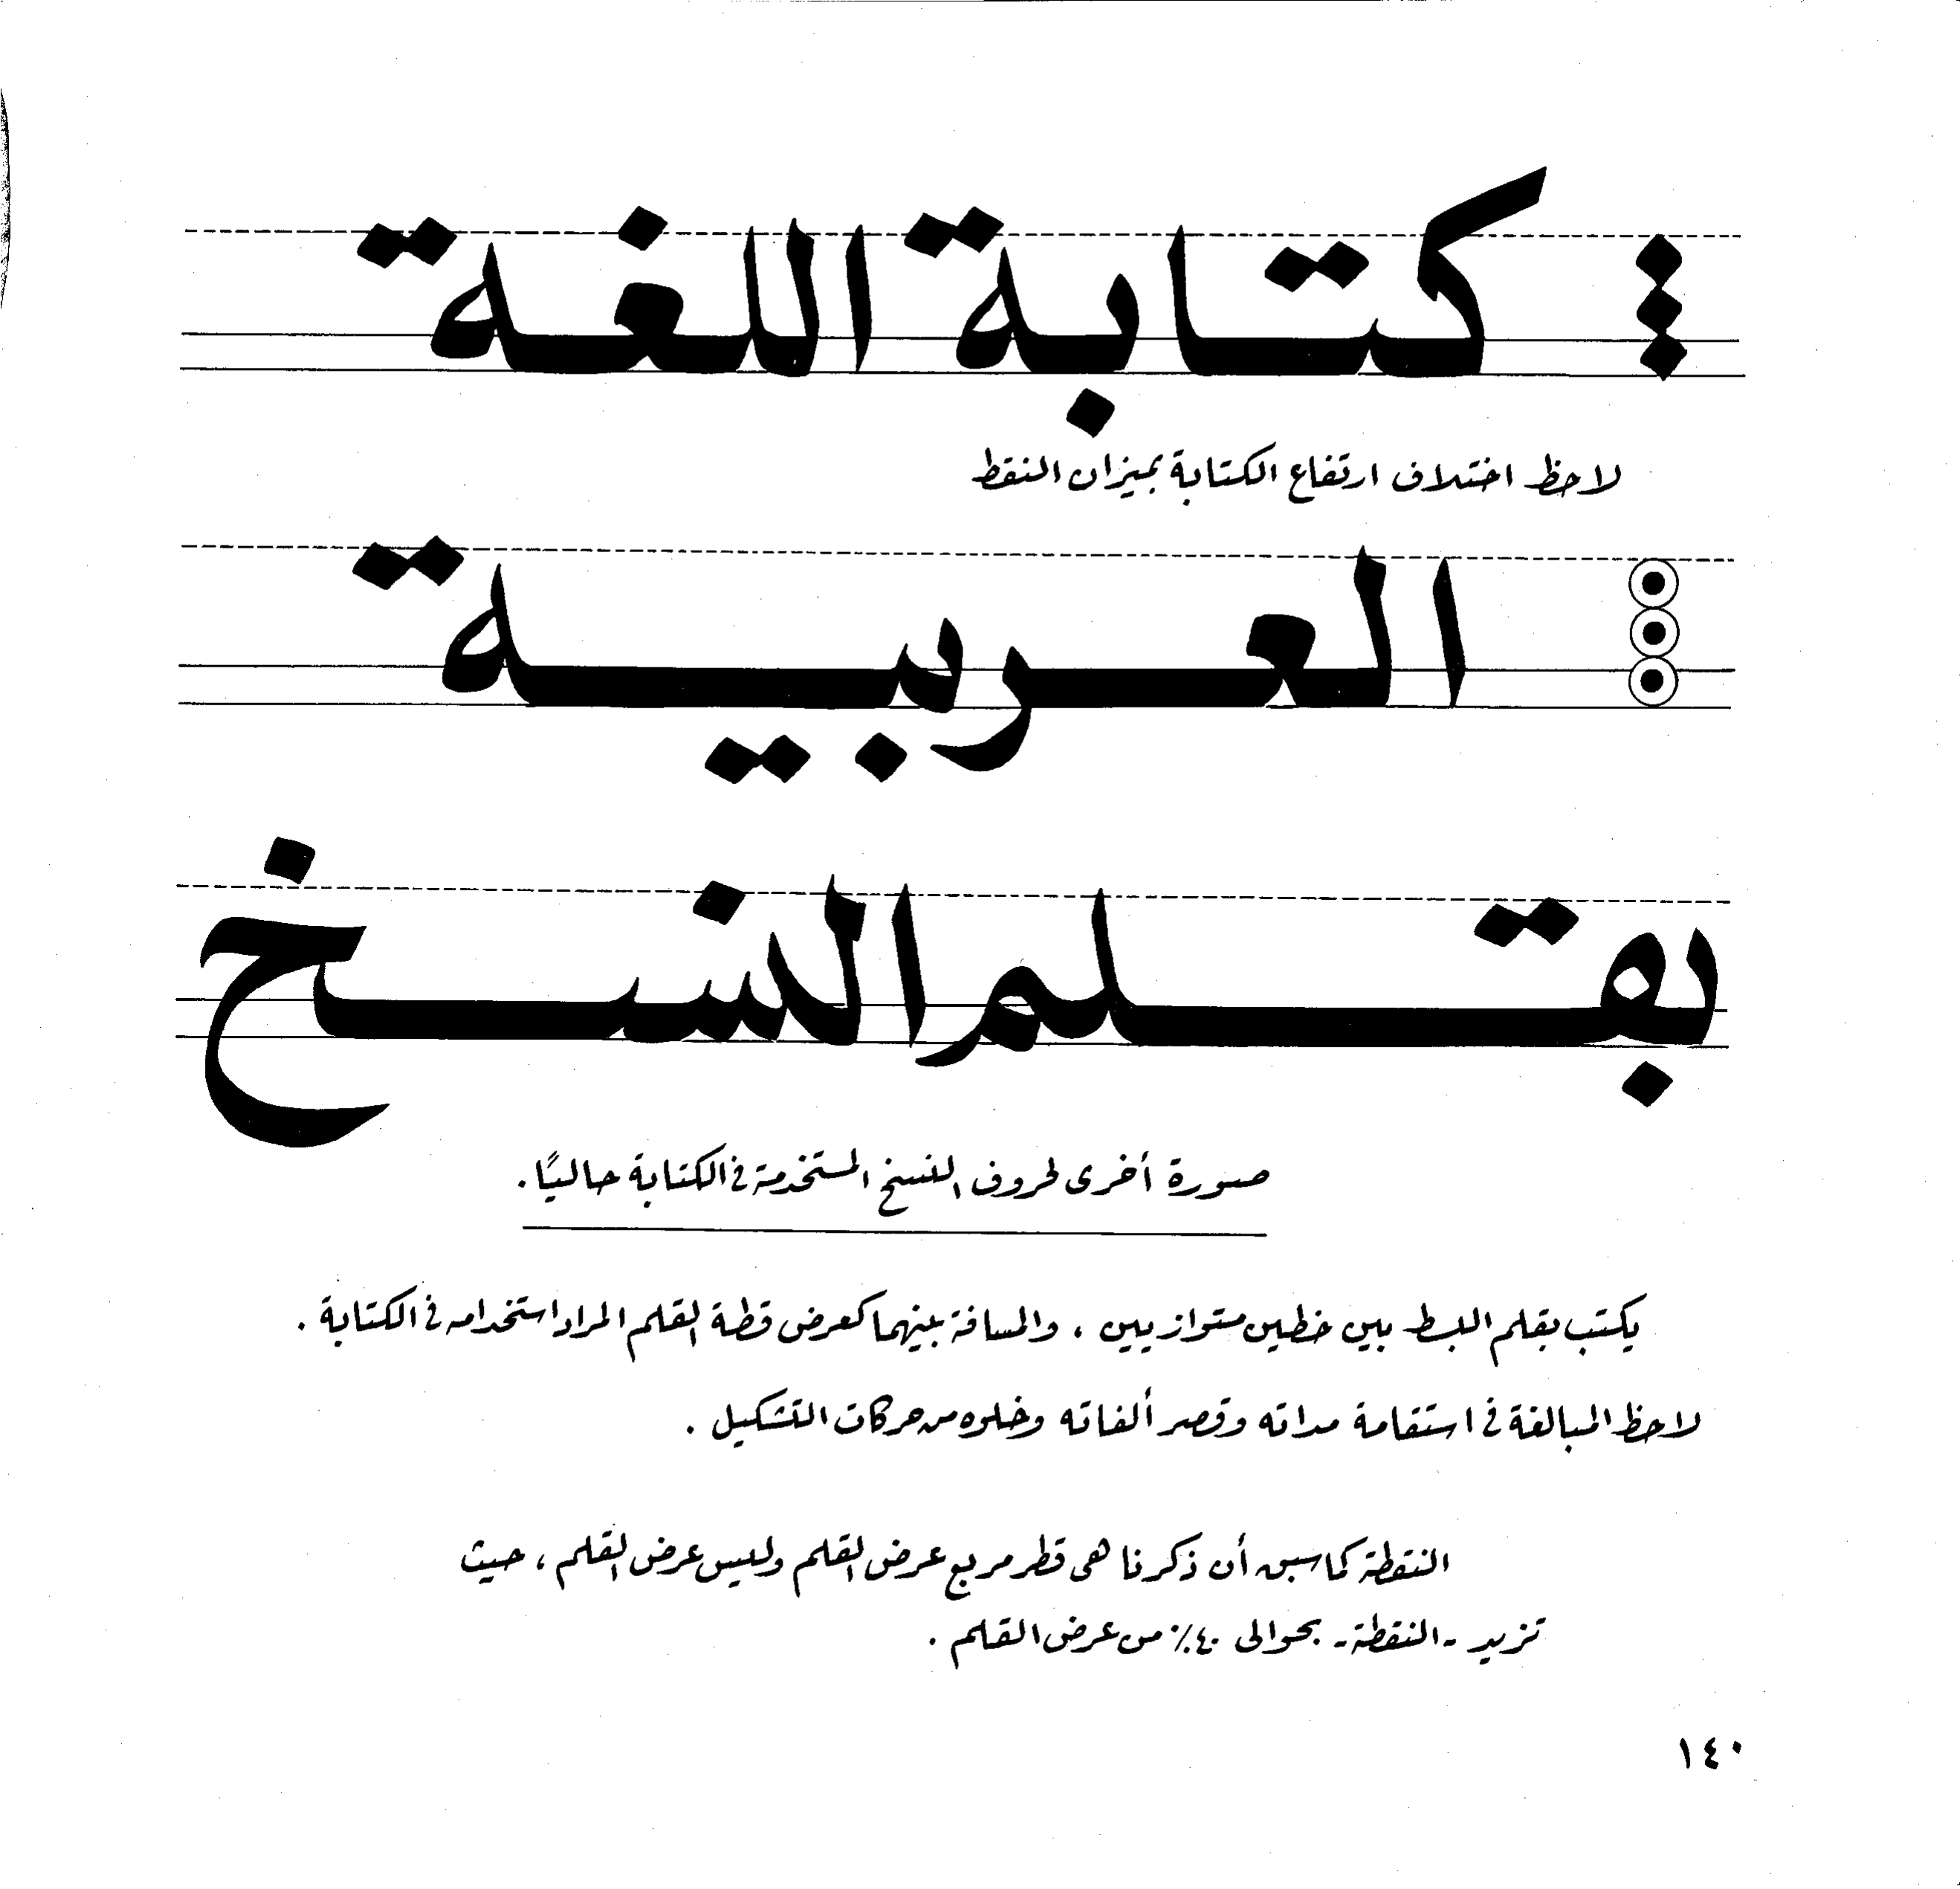 كتابة اللغة
لاحظ اختلاف ارتفاع الكتابة بميزان النقط
العربية
بقلم النسخ
صورة أخرى لحروف النسخ المستخدمة فى الكتابة حاليًا.
يكتب بقلم البسط بين خطين متوازيين ، والمسافة بينهما كعرض قطة القلم المراد استخدامه فى الكتابة .
لاحظ المبالغة فى استقامة مداته وقصر ألفاته وخلوه من حركات التشكيل .
النقطة كما سبق أن ذكرنا هى قطر مربع عرض القلم وليس عرض القلم ، حيث
تزيد - النقطة - بحوالى ٤٠٪ من عرض القلم .
١٤٠